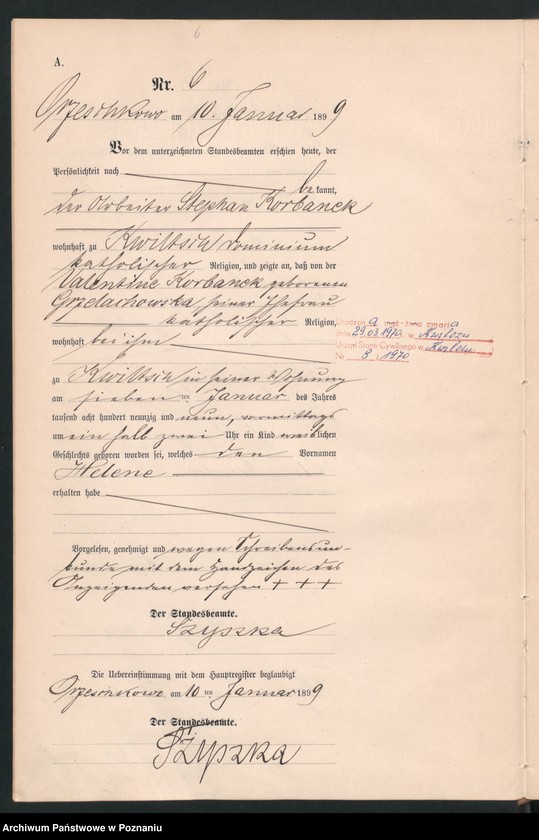 6
A.
Nr. 6
Orzeschkowo am 10. Januar 1899
Vor dem unterzeichneten Standesbeamten erschien heute, der
Persönlichkeit nach
bekannt,
der Arbeiter Stephan Korbanek
wohnhaft zu Kwiltsch Dominium
katholischer Religion, und zeigte an, daß von der
Valentine Korbanek geborenen
Grzelachowska, seiner Ehefrau
katholischer Religion,
wohnhaft bei ihm
zu Kwiltsch in seiner Wohnung
am sieben ten Januar des Jahres
tausend acht hundert neunzig und neun, vormittags
um ein halb zwei Uhr ein Kind weiblichen
Geschlechts geboren worden sei, welches den Vornamen
Helene
erhalten habe
Vorgelesen, genehmigt und wegen Schreibensun-
kunde mit dem Handzeichen des
Anzeigenden versehen + + +
Der Standesbeamte.
Szyszka
Die Uebereinstimmung mit dem Hauptregister beglaubigt
Orzeschkowo am 10 ten Januar 1899
Der Standesbeamte.
Szyszka
zmarła
dnia 29.03.1970 w Kwilczu
Urząd Stanu Cywilnego w Kwilczu
Nr 8/1970
Archiwum Państwowe w Poznaniu